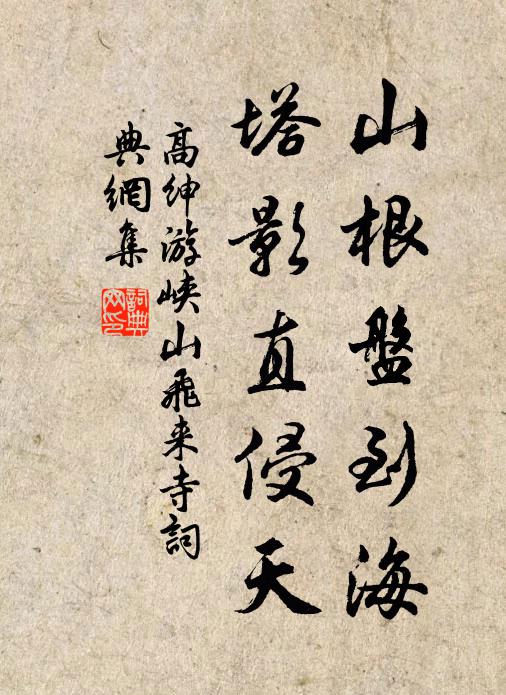 山根盤到海
塔影直侵天
高紳游峡山飛来寺詞
典網集
詞典
网印